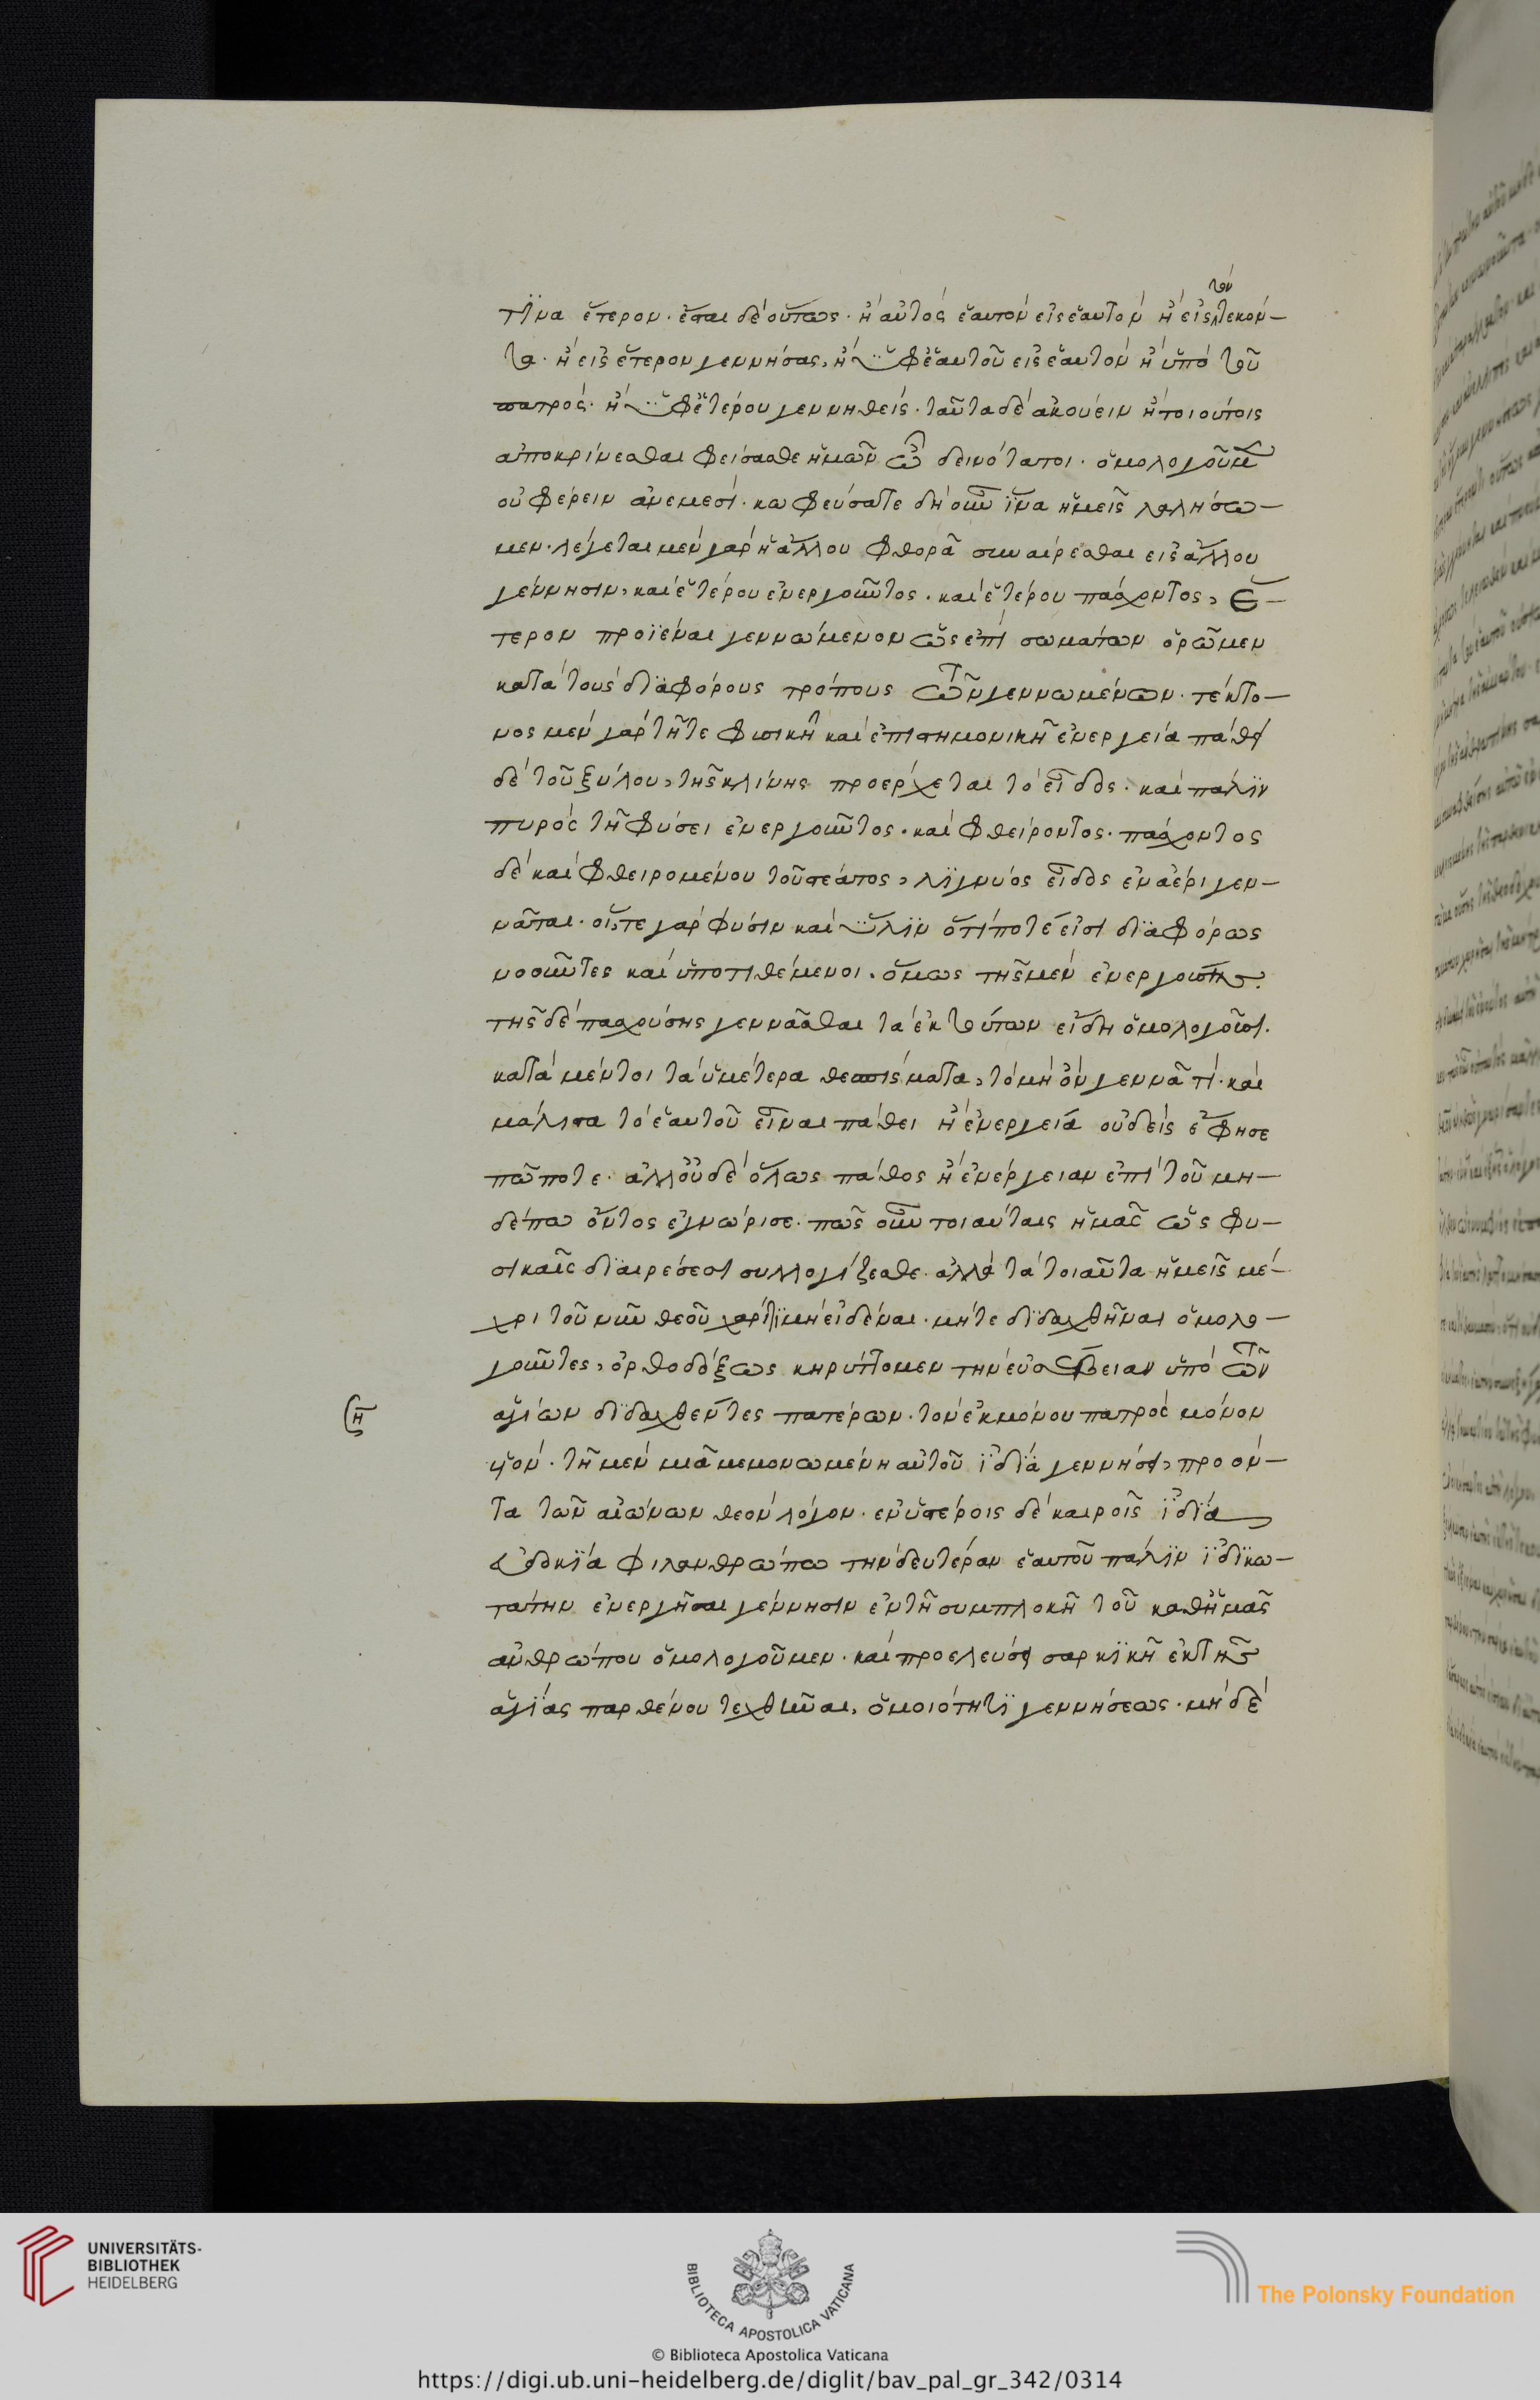 τινα ἕτερον· ἔσται δὲ οὕτως· ἢ αὐτὸς ἑαυτὸν εἰς ἑαυτὸν ἢ εἰς τὸν τεκόν-
τα· ἢ εἰς ἕτερον γεννήσας, ἢ ὑφ' ἑαυτοῦ εἰς ἑαυτὸν ἢ ὑπὸ τοῦ
πατρός· ἢ ὑφ' ἑτέρου γεννηθείς· ταῦτα δὲ ἀκούειν ἢ τοιούτοις
ἀποκρίνεσθαι φείσασθε ἡμῶν ὦ δεινότατοι· ὁμολογοῦμεν
οὐ φέρειν ἀνεμεσί· καὶ φεύσατε δὴ οὖν ἵνα ἡμεῖς λαλήσω-
μεν· λέγεται μὲν γὰρ ἡ ἄλλου φθορᾶ συναιρέσθαι εἰς ἄλλου
γέννησιν, καὶ ἑτέρου ἐνεργοῦντος· καὶ ἑτέρου πάσχοντος, ἕ-
τερον προϊέναι γεννώμενον ὡς ἐπὶ σωμάτων ὁρῶμεν
κατὰ τοὺς διαφόρους τρόπους τῶν γεννωμένων· τέκτο-
νος μὲν γὰρ τῆ τε φυσικῆ καὶ ἐπιστημονικῆ ἐνεργεία πάθει
δὲ τοῦ ξύλου, τῆς κλίνης προέρχεται τὸ εἶδος· καὶ πάλιν
πυρὸς τῆ φύσει ἐνεργοῦντος· καὶ φθείροντος· πάσχοντος
δὲ καὶ φθειρομένου τοῦ στέατος, λιγνυὸς εἶδος ἐν ἀέρι γεν-
νᾶται· οἵ τε γὰρ φύσιν καὶ ὕλην ὅτι ποτέ εἰσι διαφόρως
νοοῦντες καὶ ὑποτιθέμενοι· ὅμως τῆς μὲν ἐνεργούσης·
τῆς δὲ πασχούσης γεννᾶσθαι τὰ ἐκ τούτων εἴδη ὁμολογοῦσι·
κατὰ μέντοι τὰ ὑμέτερα θεσπίσματα, τὸ μὴ ὂν γεννᾶ τί· καὶ
μάλιστα τὸ ἑαυτοῦ εἶναι πάθει ἢ ἐνεργεία οὐδεὶς ἔφησε
πώποτε· ἀλλ' οὐδὲ ὅλως πάθος ἢ ἐνέργειαν ἐπὶ τοῦ μη-
δέπω ὄντος ἐγνώρισε· πῶς οὖν τοιαύταις ἡμᾶς ὡς φυ-
σικαῖς διαιρέσεσι συλλογίζεσθε· ἀλλὰ τὰ τοιαῦτα ἡμεῖς μέ-
χρι τοῦ νῦν θεοῦ χάριτι μὴ εἰδέναι· μήτε διδαχθῆναι ὁμολο-
γοῦντες, ὀρθοδόξως κηρύττομεν τὴν εὐσέβειαν ὑπὸ τῶν
ἁγίων διδαχθέντες πατέρων· τὸν ἐκ μόνου πατρὸς μόνον
υἱόν· τῆ μὲν μιᾶ μεμονωμένη αὐτοῦ ἰδία γεννήσει, προόν-
τα τῶν αἰώνων θεὸν λόγον· ἐν ὑστέροις δὲ καιροῖς ἰδία
εὐδοκία φιλανθρώπω τὴν δευτέραν ἑαυτοῦ πάλιν ἰδικω-
τάτην ἐνεργῆσαι γέννησιν ἐν τῆ συμπλοκῆ τοῦ καθ' ἡμᾶς
ἀνθρώπου ὁμολογοῦμεν· καὶ προελεύσει σαρκικῆ ἐκ τῆς
ἁγίας παρθένου τεχθῆναι, ὁμοιότητι γεννήσεως· μηδὲ
UNIVERSITÄTS-
BIBLIOTHEK
HEIDELBERG
BIBLIOTECA APOSTOLICA VATICANA
The Polonsky Foundation
© Biblioteca Apostolica Vaticana
https://digi.ub.uni-heidelberg.de/diglit/bav_pal_gr_342/0314